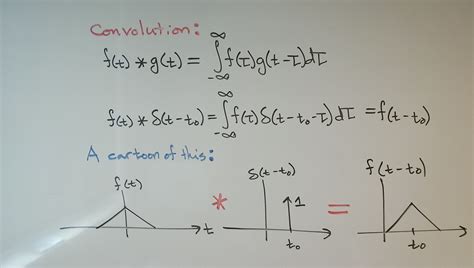 Convolution:
f(t) * g(t) = ∫_{-∞}^{∞} f(τ)g(t-τ)dτ
f(t) * δ(t-t₀) = ∫_{-∞}^{∞} f(τ)δ(t-t₀-τ)dτ = f(t-t₀)
A cartoon of this:
f(t) δ(t-t₀) f(t-t₀)
* 1 =
t t₀ t₀